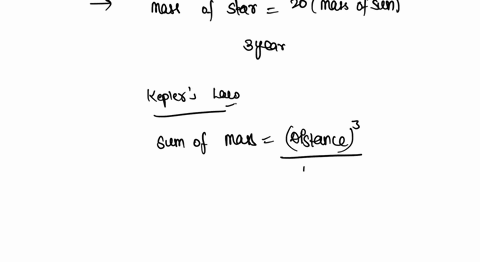 → mass of star = 20 (mass of sun)
3 year
Kepler's Laws
sum of mass = (Distance)³